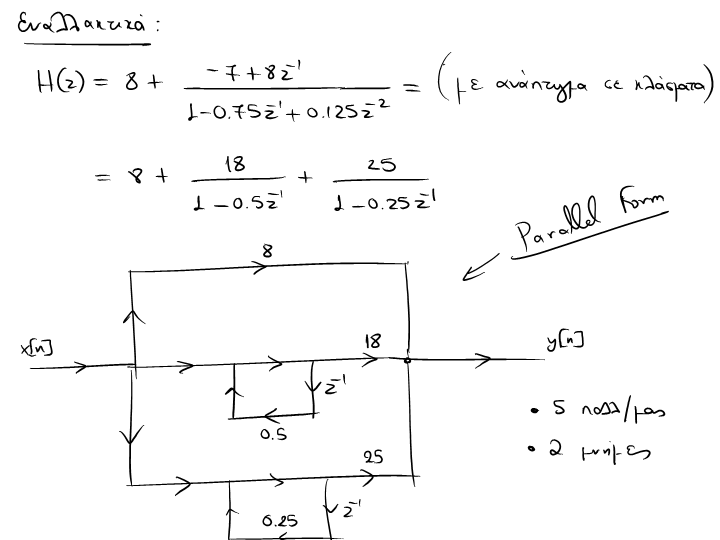 Εναλλακτικά:
H(z) = 8 + (-7 + 8z⁻¹) / (1 - 0.75z⁻¹ + 0.125z⁻²) = (με ανάπτυγμα σε κλάσματα)
= 8 + 18 / (1 - 0.5z⁻¹) + 25 / (1 - 0.25z⁻¹)
Parallel Form
8
x[n] 18 y[n]
z⁻¹
0.5
• 5 πολλ/μος
• 2 μνήμες
25
0.25 z⁻¹